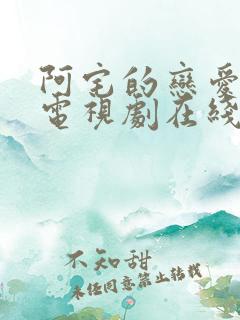 阿宅的戀愛
電視劇在綫
不知甜
未经同意禁止转载